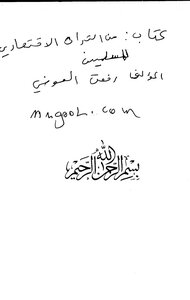 كتاب: من التراث الاقتصادي
للمسلمين
المؤلف رفعت العوضي
بسم الله الرحمن الرحيم